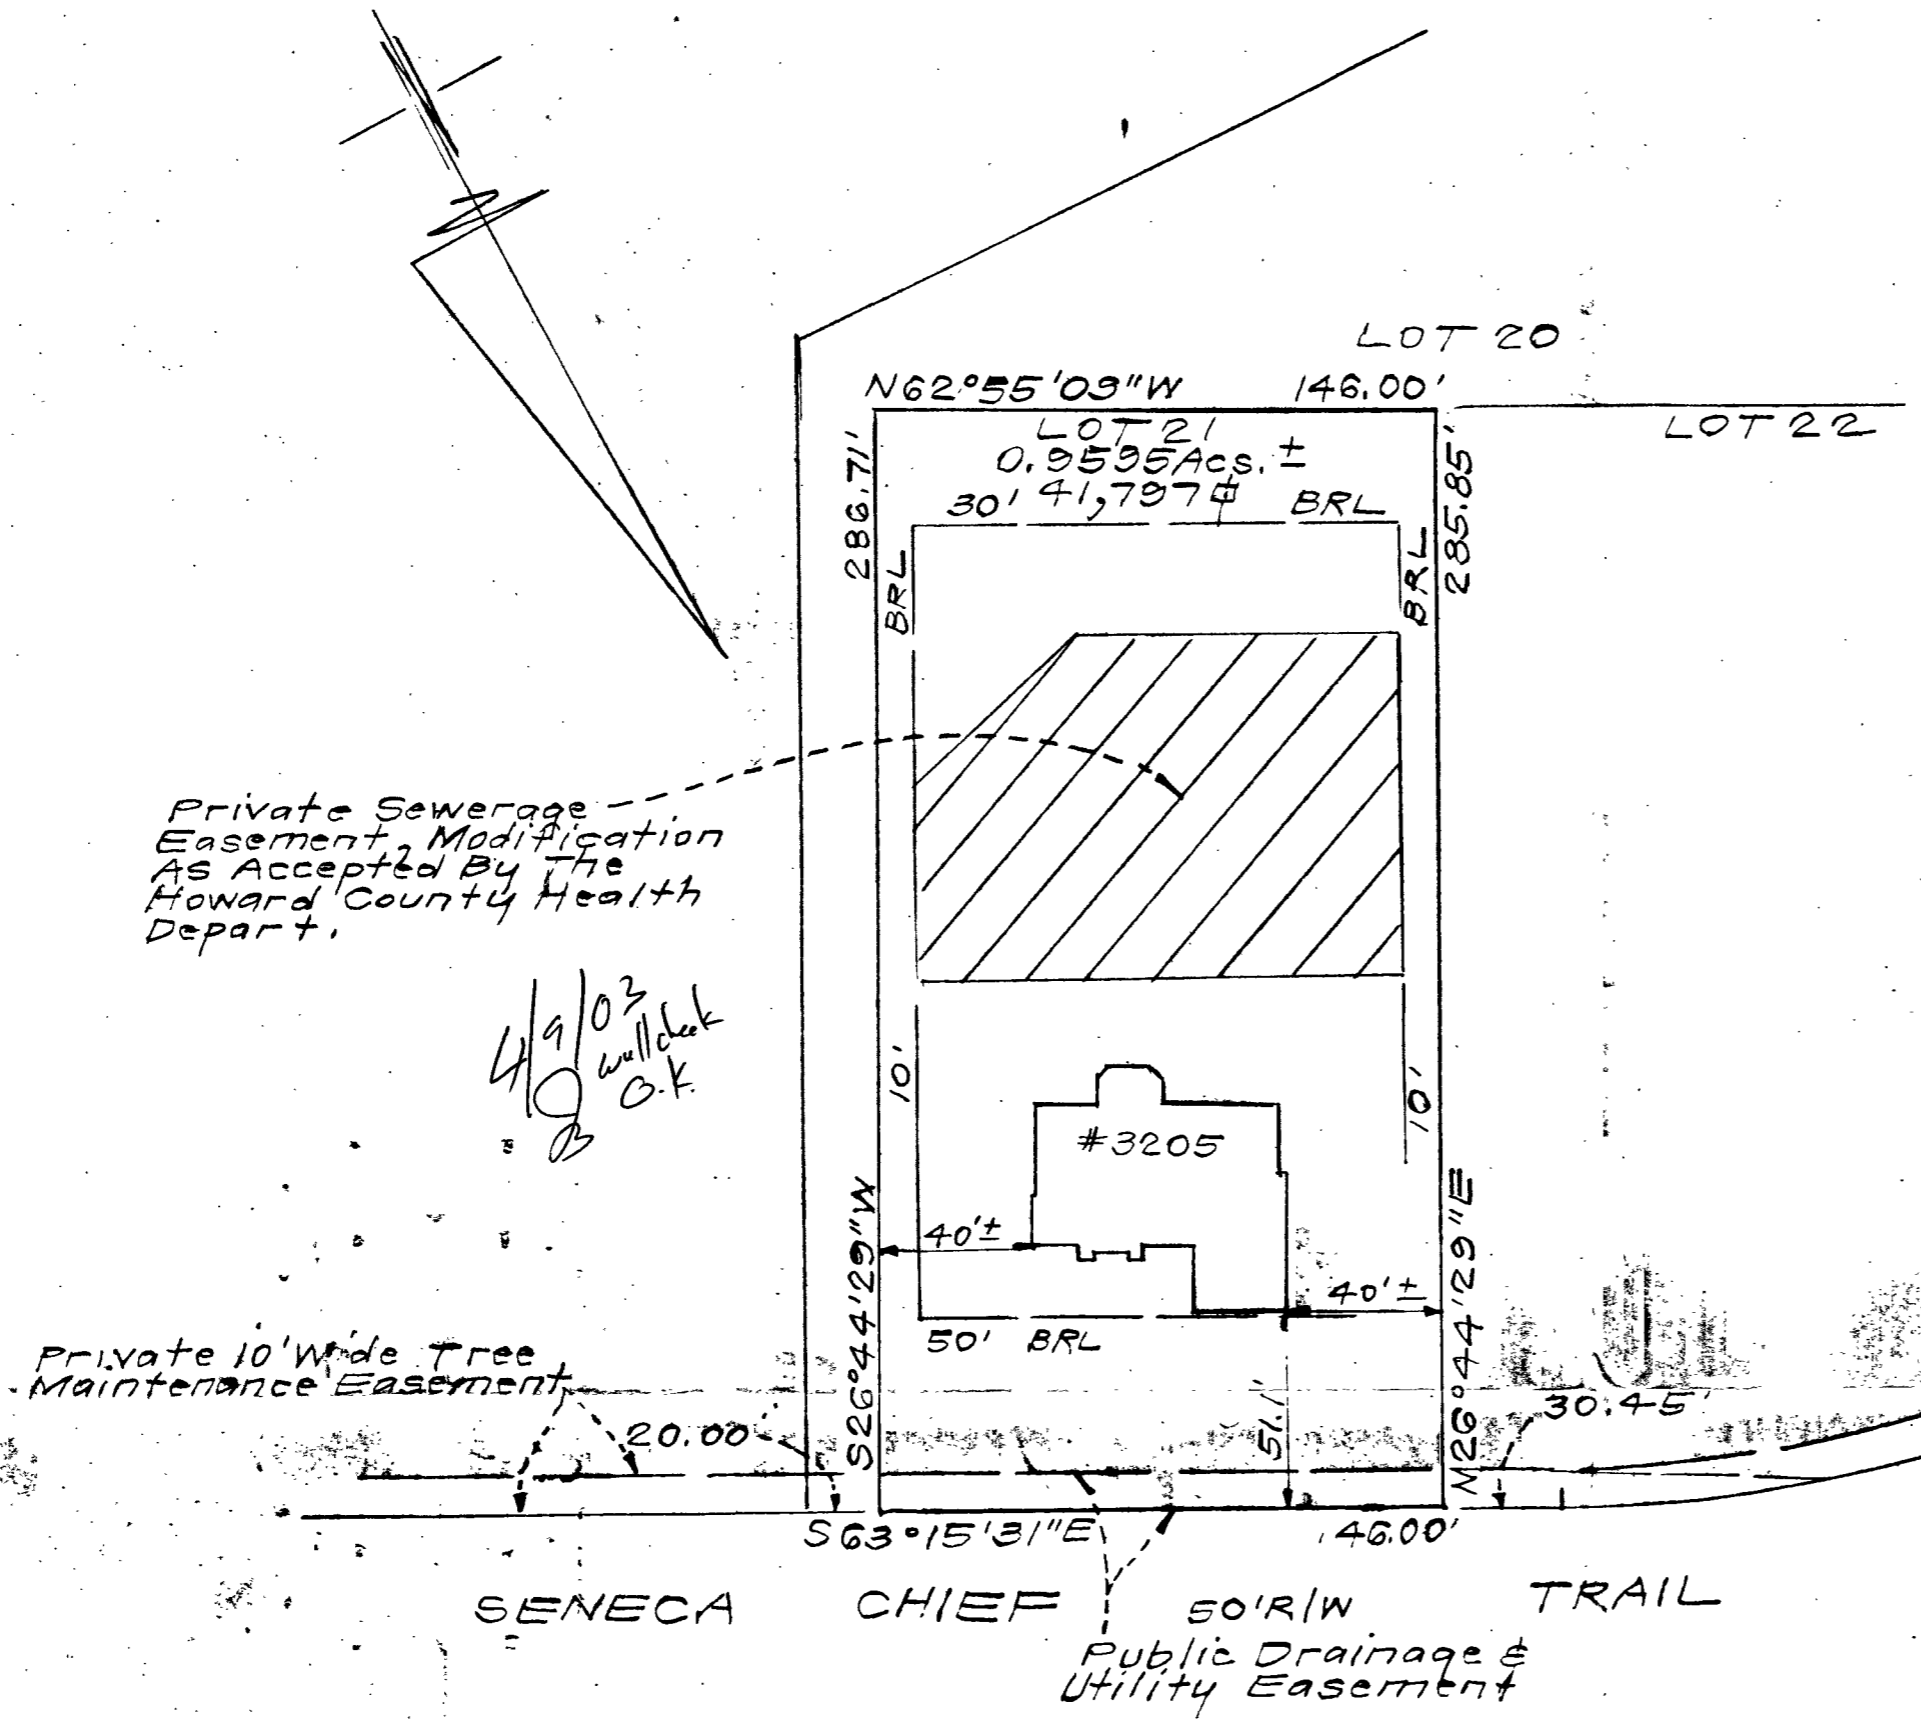 LOT 20
N62°55'09"W 146.00'
LOT 22
LOT 21
0.9595Acs.±
41,797⏍
30' BRL
286.71'
285.85'
BRL
BRL
Private Sewerage
Easement, Modification
As Accepted By The
Howard County Health
Depart.
4/9/03
wall check
O.K.
10'
10'
#3205
S26°44'29"W
N26°44'29"E
40'±
40'±
50' BRL
Private 10' Wide Tree
Maintenance Easement
20.00
51.1'
30.45'
S63°15'31"E 146.00'
SENECA CHIEF 50'R/W TRAIL
Public Drainage &
Utility Easement